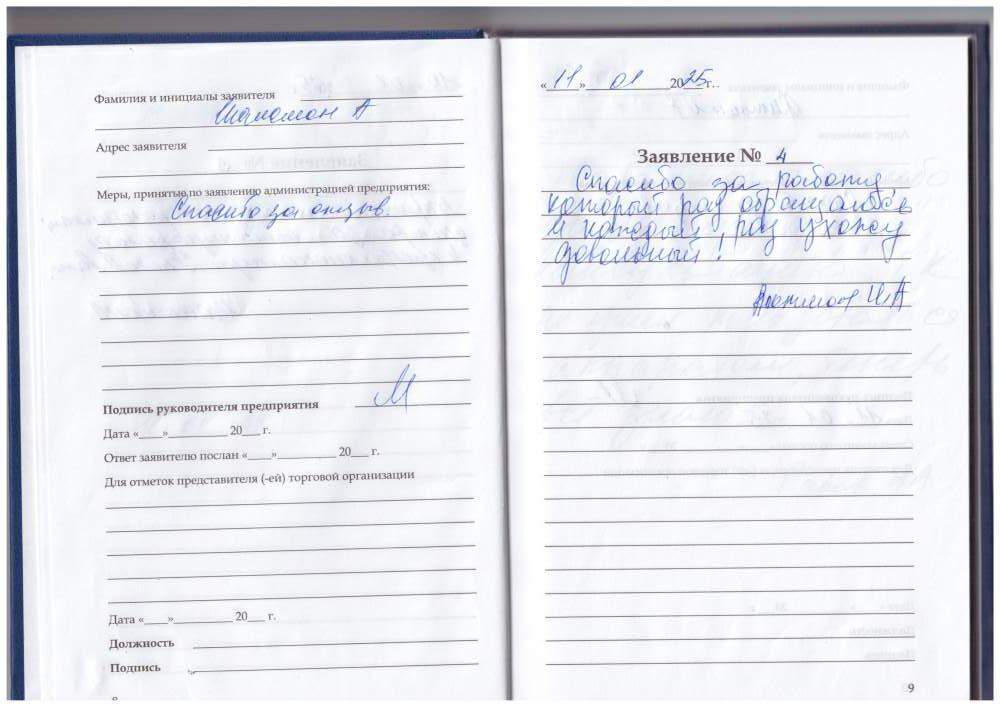 Фамилия и инициалы заявителя
Шаламон А
Адрес заявителя
Меры, принятые по заявлению администрацией предприятия:
Спасибо за отзыв.
Подпись руководителя предприятия
Дата «____»__________ 20___ г.
Ответ заявителю послан «____»__________ 20___ г.
Для отметок представителя (-ей) торговой организации
Дата «____»__________ 20___ г.
Должность
Подпись
8
«11» 01 2025г.
Заявление № 4
Спасибо за работу,
который раз обращаюсь
и каждый раз ухожу
довольный!
9